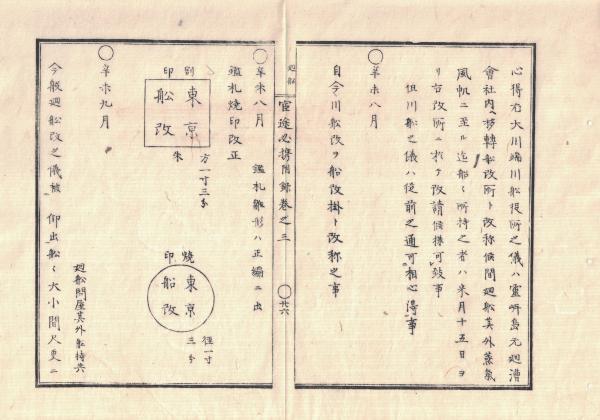 心得尤大川端川船役所之儀ハ靈岸島元廻漕
會社内ヘ移轉船改所ト改称候間廻船其外蒸氣
風帆ニ至ル迄船々所持之者ハ来月十五日ヨ
リ右改所ニ於テ改請候様可致事
但川船之儀ハ従前之通可相心得事
○辛未八月
自今川船改ヲ船改掛ト改称之事
廻船
官途必携附録巻之三
○廿六
○辛未八月
鑑札雛形ハ正編ニ出
鑑札焼印改正
割印
東京船改
方一寸三分
朱
焼印
東京船改
徑一寸三分
○辛未九月
廻船問屋其外船持共
今般廻船改之儀被 仰出船々大小間尺更ニ